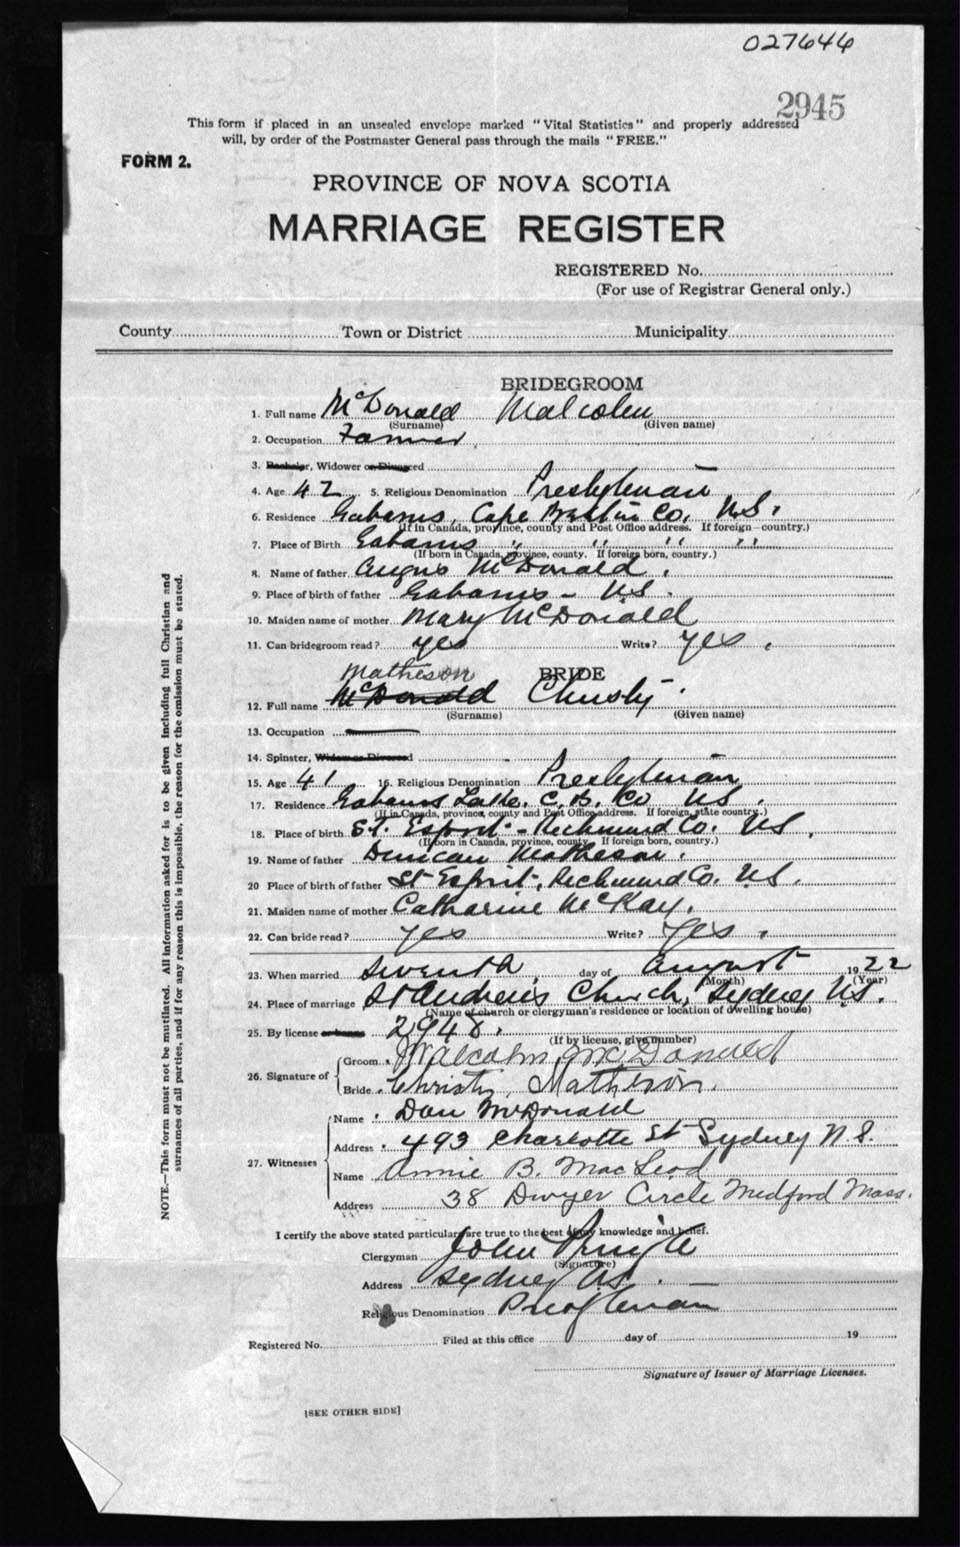 027646
2945
This form if placed in an unsealed envelope marked "Vital Statistics" and properly addressed
will, by order of the Postmaster General pass through the mails "FREE."
FORM 2.
PROVINCE OF NOVA SCOTIA
MARRIAGE REGISTER
REGISTERED No.
(For use of Registrar General only.)
County Town or District Municipality
BRIDEGROOM
1. Full name McDonald Malcolm
(Surname) (Given name)
2. Occupation Farmer
3. Bachelor, Widower or Divorced
4. Age 42 5. Religious Denomination Presbyterian
6. Residence Gabarus, Cape Breton Co. N.S.
(If in Canada, province, county and Post Office address. If foreign—country.)
7. Place of Birth Gabarus " " " "
(If born in Canada, province, county. If foreign born, country.)
8. Name of father Angus McDonald.
9. Place of birth of father Gabarus - N.S.
10. Maiden name of mother Mary McDonald
11. Can bridegroom read? yes Write? yes.
Matheson BRIDE
12. Full name McDonald Christy
(Surname) (Given name)
13. Occupation
14. Spinster, Widow or Divorced
15. Age 41 16. Religious Denomination Presbyterian
17. Residence Gabarus Lake, C.B. Co N.S.
(If in Canada, province, county and Post Office address. If foreign, state country.)
18. Place of birth St. Esprit - Richmond Co. N.S.
(If born in Canada, province, county. If foreign born, country.)
19. Name of father Duncan Matheson.
20 Place of birth of father St Esprit, Richmond Co. N.S.
21. Maiden name of mother Catharine McKay.
22. Can bride read? yes Write? yes.
23. When married Seventh day of August 1922
(Month) (Year)
24. Place of marriage St Andrew's Church, Sydney N.S.
(Name of church or clergyman's residence or location of dwelling house)
25. By license or banns 2948.
(If by license, give number)
26. Signature of Groom Malcolm McDonald
Bride Christy Matheson.
27. Witnesses Name Dan McDonald
Address 493 Charlotte St Sydney N.S.
Name Annie B. MacLeod
Address 38 Dwyer Circle Medford Mass.
I certify the above stated particulars are true to the best of my knowledge and belief.
Clergyman John Pringle
(Signature)
Address Sydney N.S.
Religious Denomination Presbyterian
Registered No. Filed at this office day of 19
Signature of Issuer of Marriage Licenses.
[SEE OTHER SIDE]
NOTE.—This form must not be mutilated. All information asked for is to be given including full Christian and
surnames of all parties, and if for any reason this is impossible, the reason for the omission must be stated.